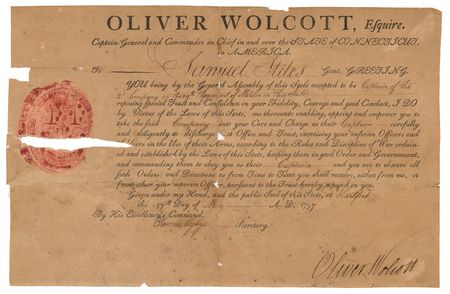 OLIVER WOLCOTT, Esquire.
Captain General and Commander in Chief in and over the STATE of CONNECTICUT,
in AMERICA.
To Samuel Stiles Gent. GREETING.
YOU being by the General Assembly of this State accepted to be Captain of the
Company in the Regiment of in this State
reposing special Trust and Confidence in your Fidelity, Courage and good Conduct, I DO
by Virtue of the Laws of this State, me thereunto enabling, appoint and empower you to
take the said Company into your Care and Charge as their Captain carefully
and diligently to discharge Office and Trust, exercising your inferior Officers and
in the Use of their Arms, according to the Rules and Discipline of War ordain
and established by the Laws of this State, keeping them in good Order and Government,
and commanding them to obey you as their Captain and you are to observe all
such Orders, and Directions as from Time to Time you shall receive, either from me, or
from other your superior Officer, pursuant to the Trust hereby reposed in you.
Given under my Hand, and the public Seal of this State, at Hartford
the Day of May A. D. 1797
By His Excellency's Command,
Secretary.
Oliver Wolcott